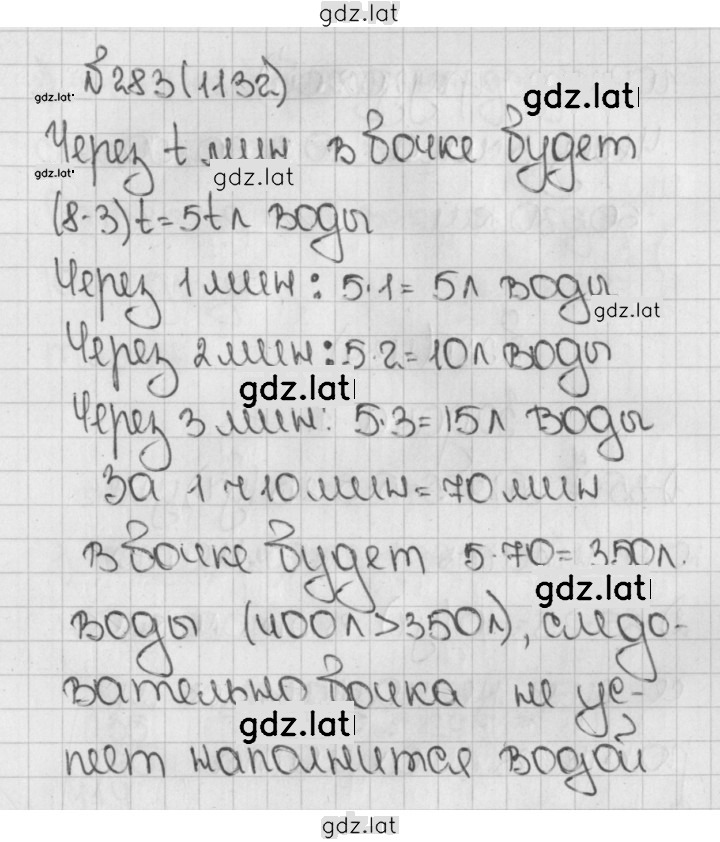 gdz.lat
№283(1132)
gdz.lat
gdz.lat
Через t мин в бочке будет
gdz.lat
gdz.lat
(8-3)t=5t л воды
Через 1 мин: 5·1= 5л воды
gdz.lat
Через 2 мин: 5·2=10л воды
gdz.lat
Через 3 мин: 5·3=15л воды
За 1 ч 10 мин=70 мин
в бочке будет 5·70=350л.
gdz.lat
воды (400л>350л), следо-
вательно бочка не ус-
gdz.lat
пеет наполнится водой
gdz.lat